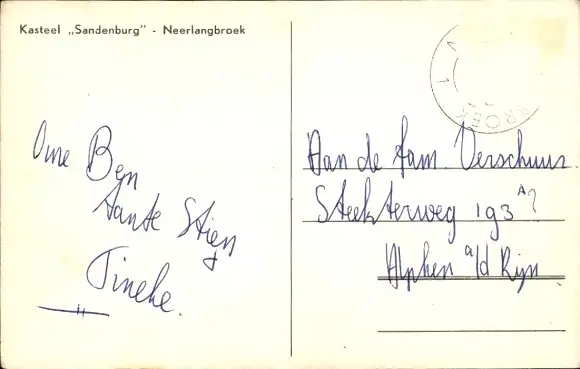 Kasteel „Sandenburg" - Neerlangbroek
Ome Ben
Tante Stien
Tineke.
Aan de fam Verschuur.
Steekterweg 193 A?
Alphen a/d Rijn